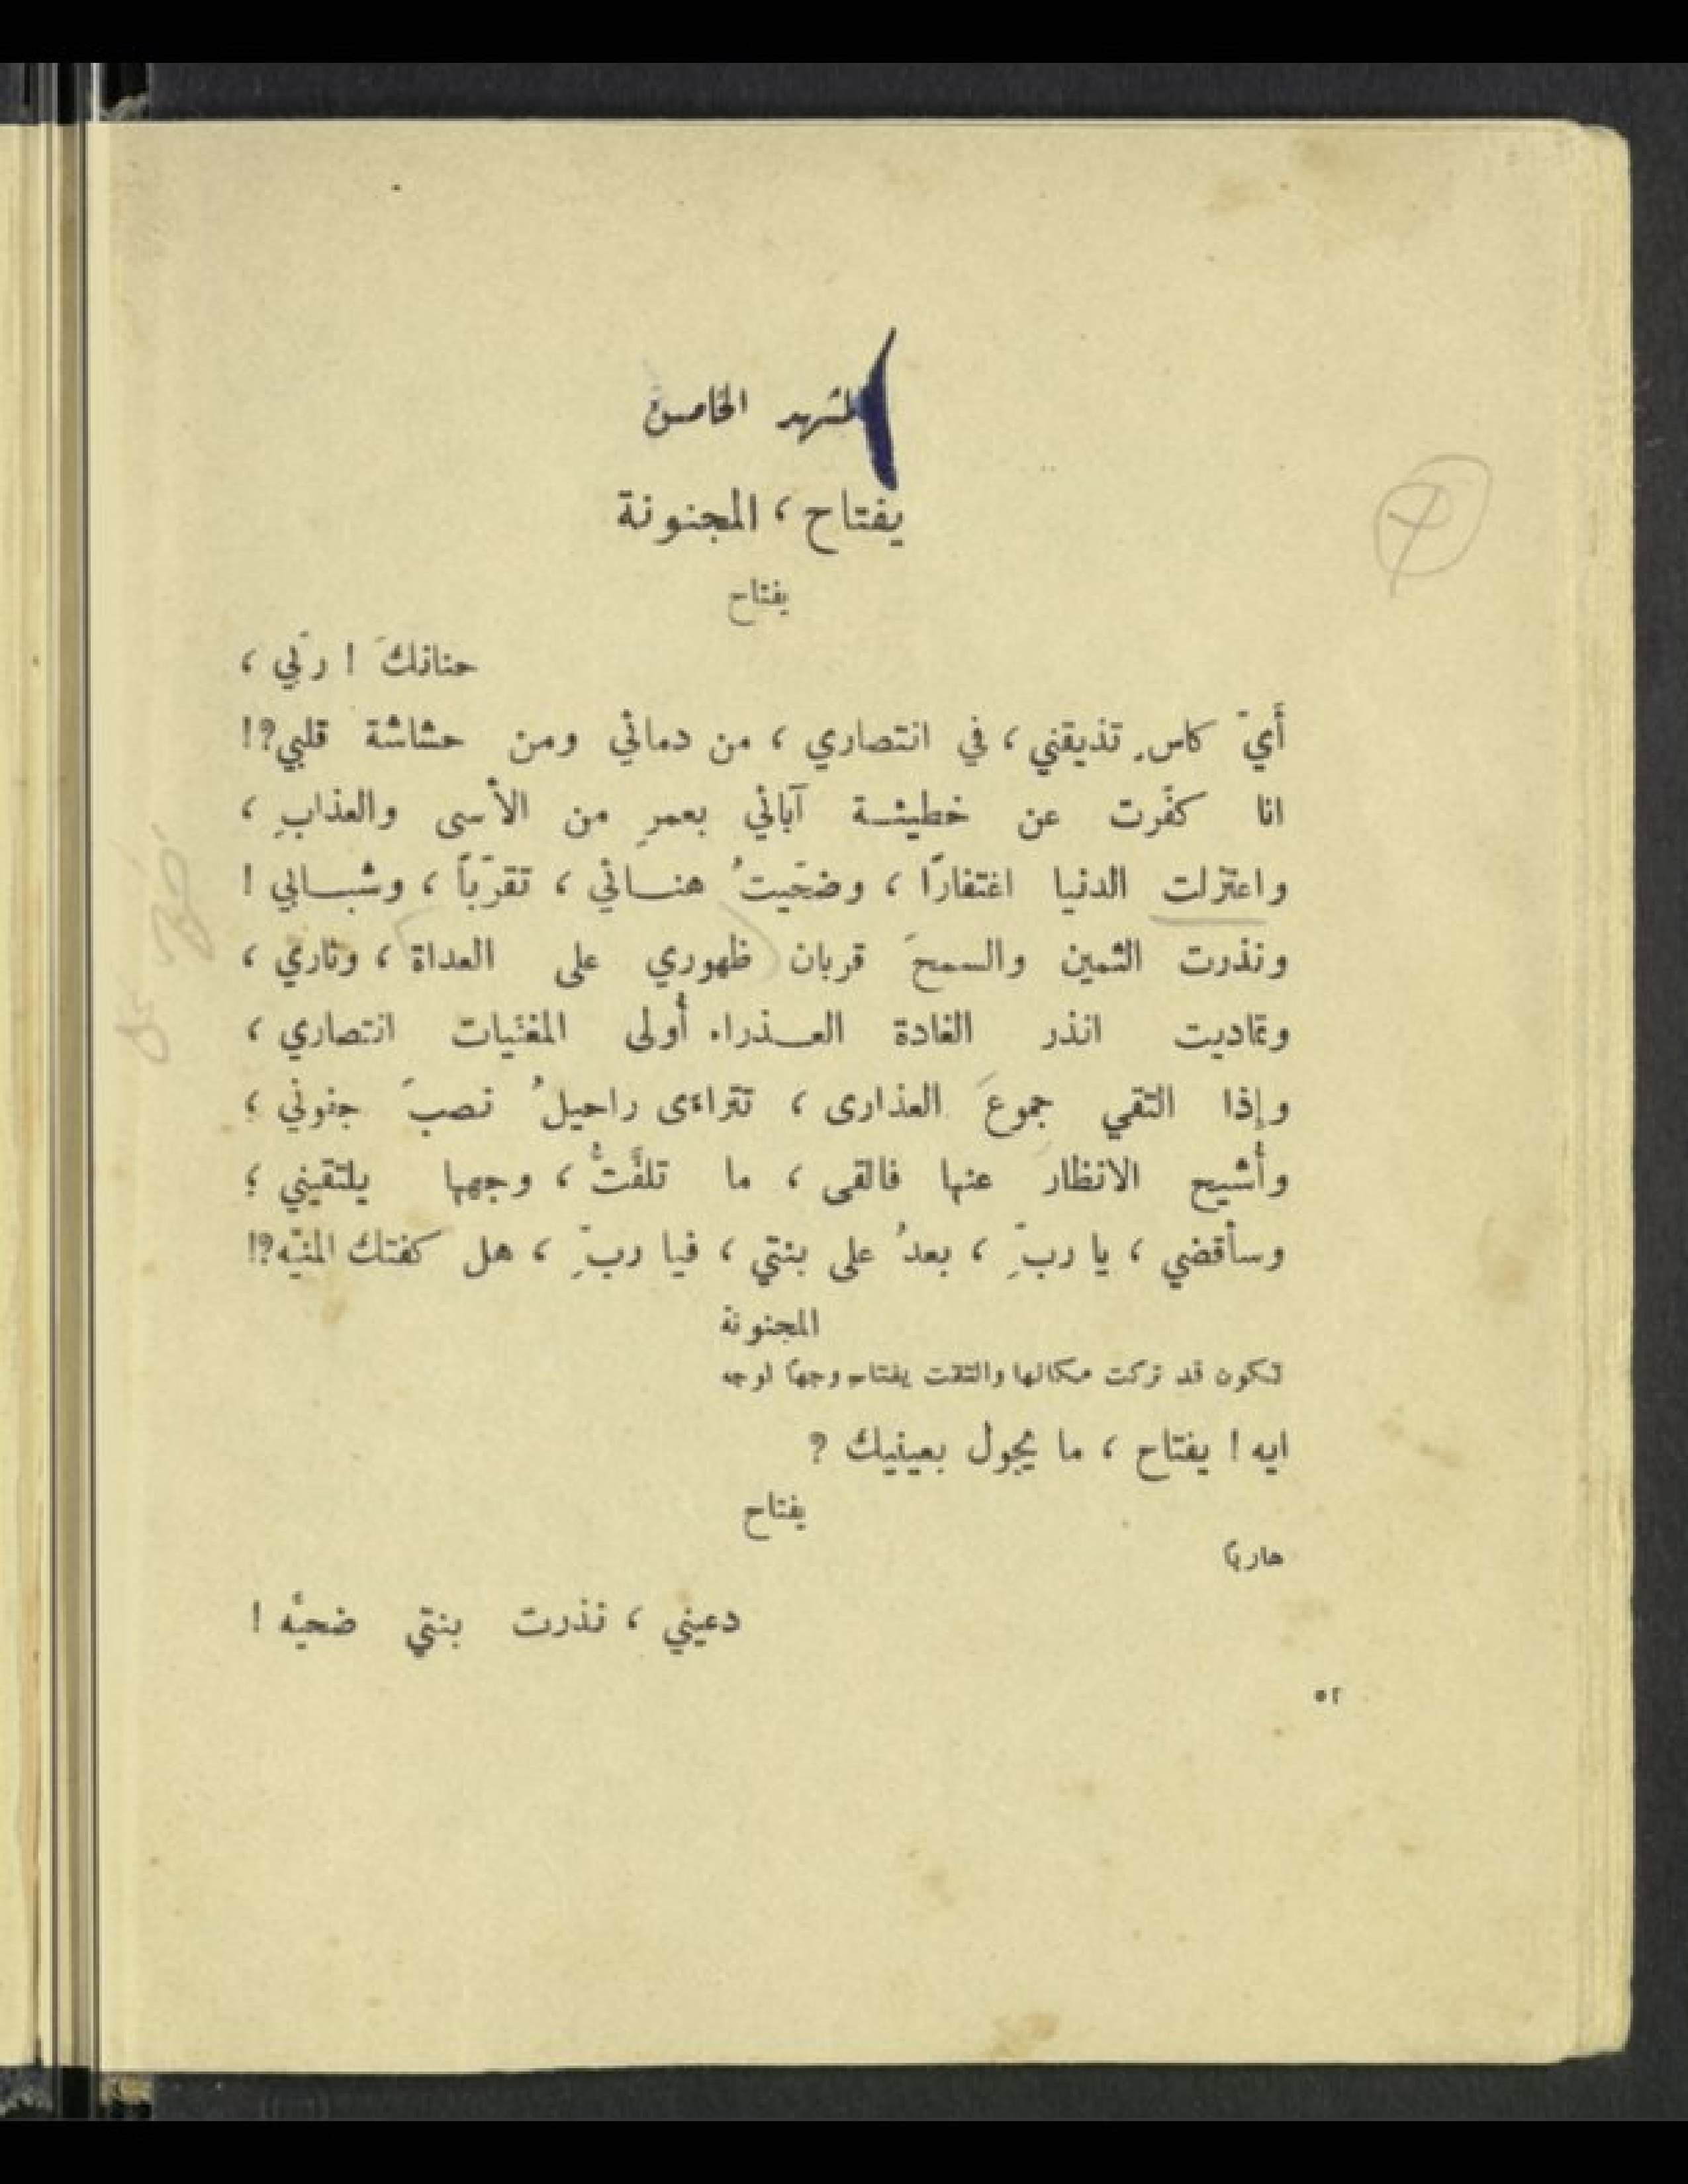 المشهد الخامس
يفتاح، المجنونة
يفتاح
حنانكَ! ربّي،
أَيّ كاسٍ تذيقني، في انتصاري، من دمائي ومن حشاشة قلبي؟!
انا كفّرت عن خطيئة آبائي بعمرٍ من الأسى والعذابِ،
واعتزلت الدنيا اغتفارًا، وضحّيتُ هنائي، تقرّباً، وشبابي!
ونذرت الثمين والسمحَ قربان ظهوري على العداة، وثاري،
وتماديت انذر الغادة العذراء أولى المغنّيات انتصاري،
وإذا التقي جموعَ العذارى، تتراءى راحيلُ نصبَ جفوني؛
وأشيح الانظارَ عنها فالقى، ما تلفَّتُّ، وجهها يلتقيني؛
وسأقضي، يا ربِّ، بعدُ على بنتي، فيا ربِّ، هل كفتك المنيّه؟!
المجنونة
تكون قد تركت مكانها والتقت يفتاح وجهًا لوجه
ايه! يفتاح، ما يجول بعينيك؟
يفتاح
هاربًا
دعيني، نذرت بنتي ضحيّه!
٥٢